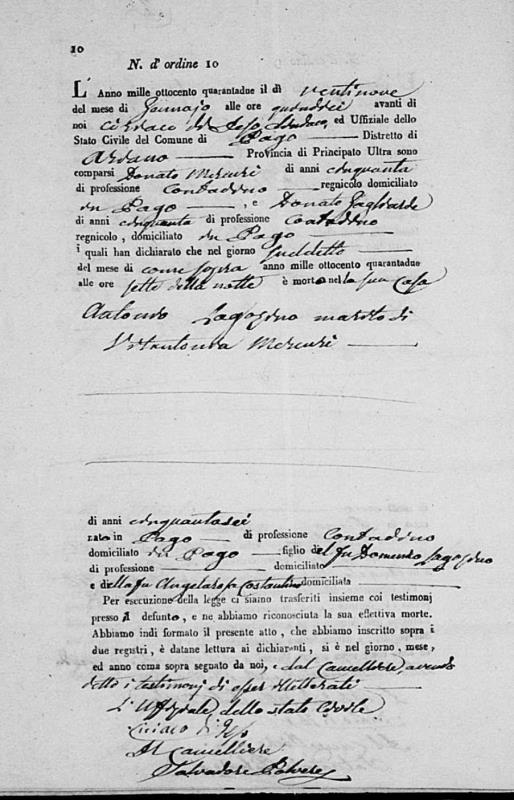 10
N. d'ordine 10
L' Anno mille ottocento quarantadue il dì ventinove
del mese di Gennajo alle ore quindici avanti di
noi Ciriaco de Ieso Sindaco, ed Uffiziale dello
Stato Civile del Comune di Pago Distretto di
Ariano Provincia di Principato Ultra sono
comparsi Donato Mercuri di anni cinquanta
di professione Contadino regnicolo domiciliato
in Pago , e Donato Gagliarde
di anni cinquanta di professione Contadino
regnicolo, domiciliato in Pago
i quali han dichiarato che nel giorno suddetto
del mese di come sopra anno mille ottocento quarantadue
alle ore sette della notte è morto nella sua Casa
Antonio marito di
Vitantonia Mercuri
di anni cinquantasei
nato in Pago di professione Contadino
domiciliato in Pago figlio del fu Domenico
di professione domiciliato
e della fu Angelarosa Costantino domiciliata
Per esecuzione della legge ci siamo trasferiti insieme coi testimonj
presso il defunto, e ne abbiamo riconosciuta la sua effettiva morte.
Abbiamo indi formato il presente atto, che abbiamo inscritto sopra i
due registri, è datane lettura ai dichiaranti, si è nel giorno, mese,
ed anno come sopra segnato da noi, e dal Cancelliere, avendo
detto i testimonj di esser illitterati
L'Uffiziale dello stato Civile
Ciriaco di Ieso
Il Cancelliere
Salvadore Polvere